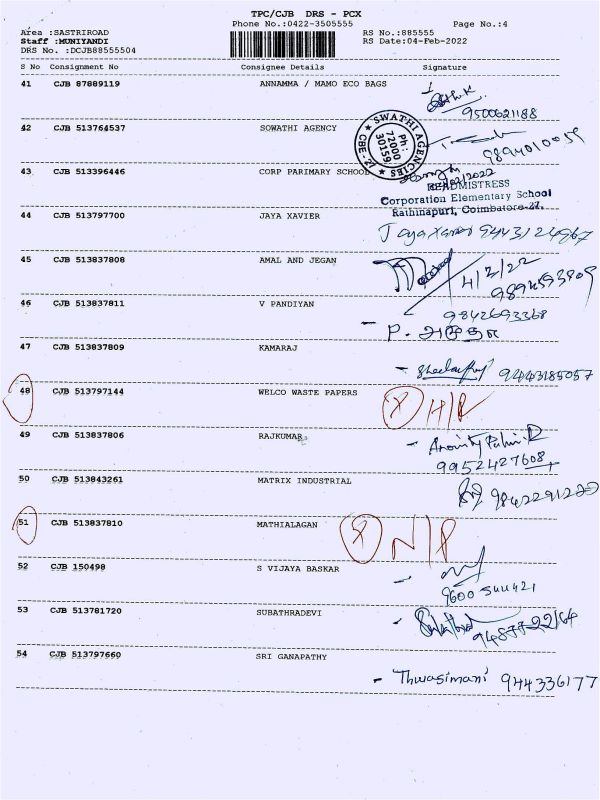 TPC/CJB DRS - PCX
Phone No.:0422-3505555 Page No.:4
Area :SASTRIROAD RS No.:885555
Staff :MUNIYANDI RS Date:04-Feb-2022
DRS No. :DCJB88555504
S No Consignment No Consignee Details Signature
41 CJB 87889119 ANNAMMA / MAMO ECO BAGS
9500621188
42 CJB 513764537 SOWATHI AGENCY
SWATHI AGENCIES
Ph: 72000 30159
CBE-27
9894010059
43 CJB 513396446 CORP PARIMARY SCHOOL
HEADMISTRESS
Corporation Elementary School
Rathinapuri, Coimbatore-27.
44 CJB 513797700 JAYA XAVIER
Jaya Xavier 9443124967
45 CJB 513837808 AMAL AND JEGAN
4/2/22
9894593809
46 CJB 513837811 V PANDIYAN
9842693368
47 CJB 513837809 KAMARAJ
9443185057
48 CJB 513797144 WELCO WASTE PAPERS
X H/R
49 CJB 513837806 RAJKUMAR
9952427608
50 CJB 513843261 MATRIX INDUSTRIAL
51 CJB 513837810 MATHIALAGAN
X N/P
52 CJB 150498 S VIJAYA BASKAR
53 CJB 513781720 SUBATHRADEVI
54 CJB 513797660 SRI GANAPATHY
Thwasimani 944336177